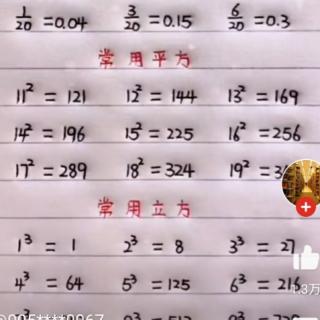 1/20 =0.04 3/20 =0.15 6/20 =0.3
常用平方
11² = 121 12² = 144 13² = 169
14² = 196 15² = 225 16² = 256
17² = 289 18² = 324 19² = 3
常用立方
1³ = 1 2³ = 8 3³ = 27
4³ = 64 5³ = 125 6³ = 216
.3万